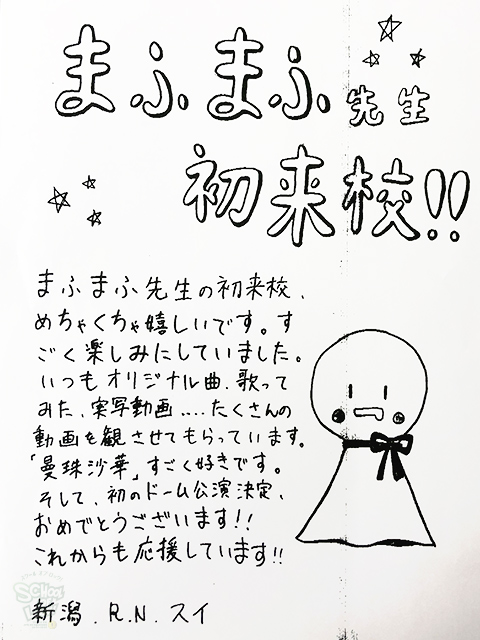 まふまふ先生
初来校!!
まふまふ先生の初来校、
めちゃくちゃ嬉しいです。す
ごく楽しみにしていました。
いつもオリジナル曲、歌って
みた、実写動画....たくさんの
動画を観させてもらっています。
「曼珠沙華」すごく好きです。
そして、初のドーム公演決定、
おめでとうございます!!
これからも応援しています!!
新潟.R.N.スイ